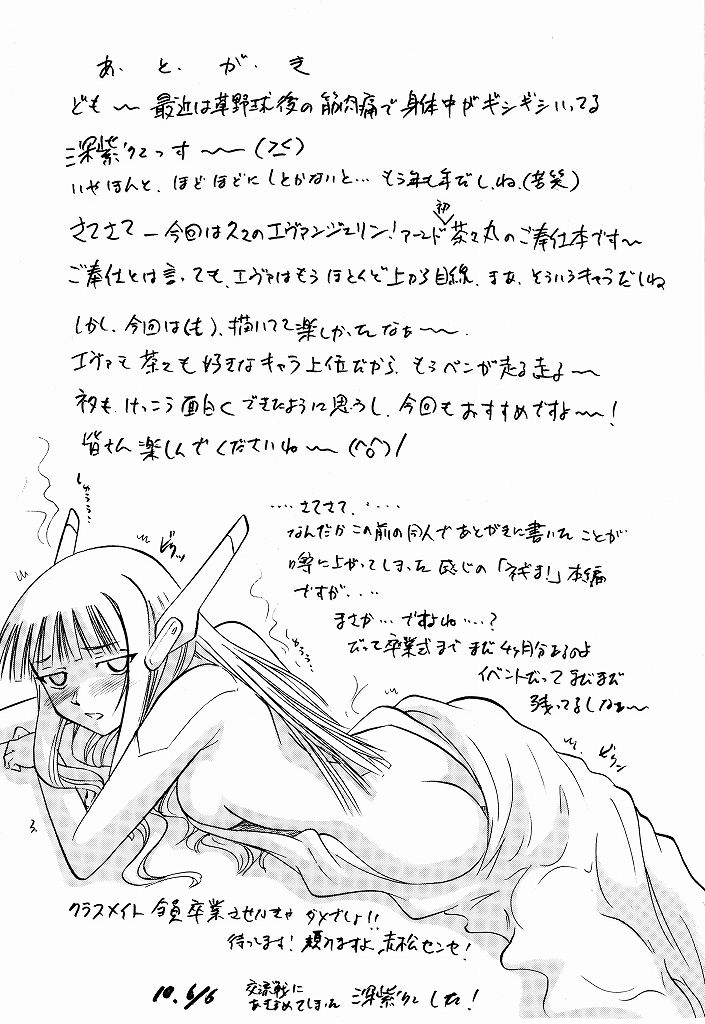 あ と が き
ども〜 最近は草野球後の筋肉痛で身体中がギシギシいってる
深紫でっす〜〜(>≦)
いやほんと、ほどほどにしとかないと… もう年も年だし、ね、(苦笑)
さてさてー今回は久々のエヴァンジェリン!アーンド初茶々丸のご奉仕本です〜
ご奉仕とは言っても、エヴァはもうほとんど上から目線、まあ、そういうキャラだしね
しかし、今回は(も)、描いてて楽しかったなぁ〜〜.
エヴァも茶々も好きなキャラ上位だから、もうペンが走る走る〜〜
ネタも、けっこう面白くできたように思うし、今回もおすすめですよ〜〜!
皆さん楽しんでくださいね〜〜(^o^)/
‥‥さてさて、‥‥
なんだかこの前の同人であとがきに書いたことが
噂に上がってしまった感じの「ネギま!」本編
ですが・・・
まさか…ですよね…?
だって卒業式までまだ4ヶ月分あるのよ
イベントだってまだまだ
残ってるしなぁ〜
ビクッ
ビクン
クラスメイト全員卒業させなきゃダメでしょ!!
待ってます!頼みますよ、赤松センセ!
10. 6/6
交流戦に
あつすめてしまった
深紫でした!